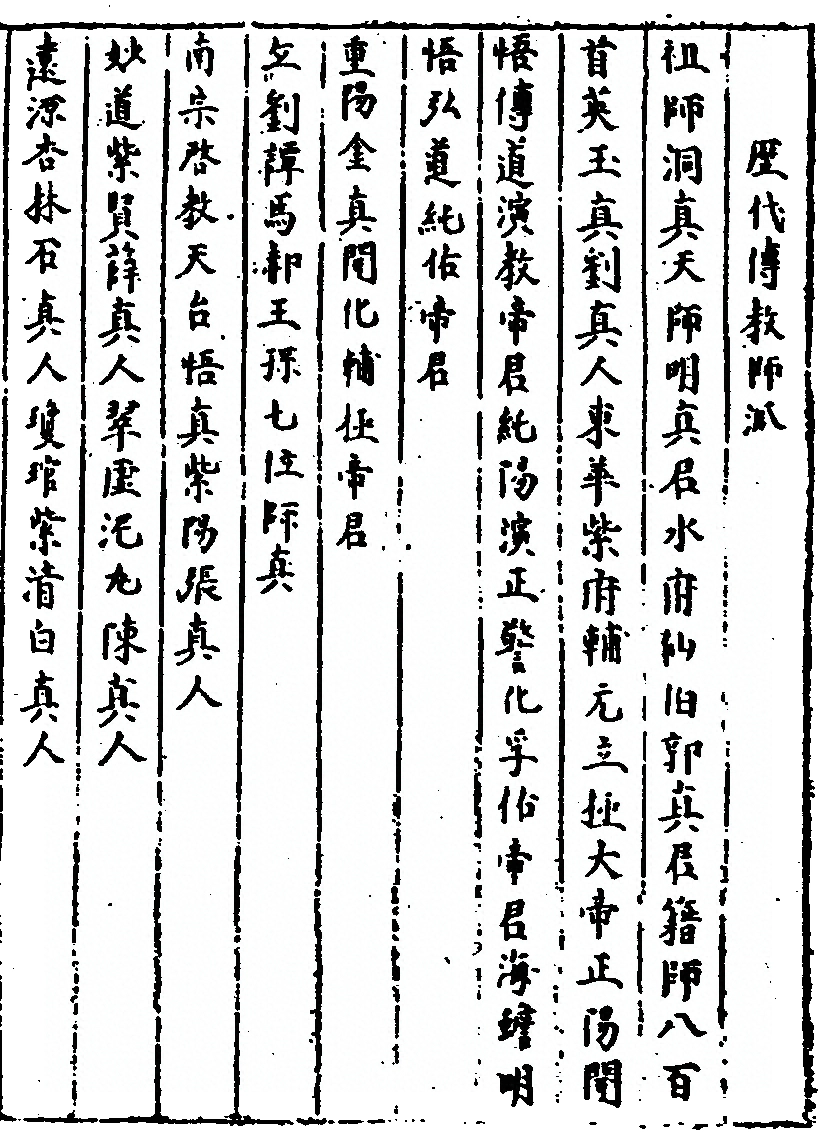 歴代傳教師派
祖師洞真天師明真君水府仙伯郭真君籍師八百
首英玉真劉真人東華紫府輔元立极大帝正陽開
悟傳道演教帝君純陽演正警化孚佑帝君海蟾明
悟弘道純佑帝君
重陽全真開化輔极帝君
丘劉譚馬郝王孫七位師真
南宗啓教天台悟真紫陽張真人
妙道紫賢薛真人翠虛泥丸陳真人
遠源杏林石真人瓊琯紫清白真人